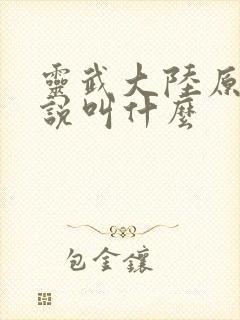 靈武大陸原
說叫什麼
包金鑲